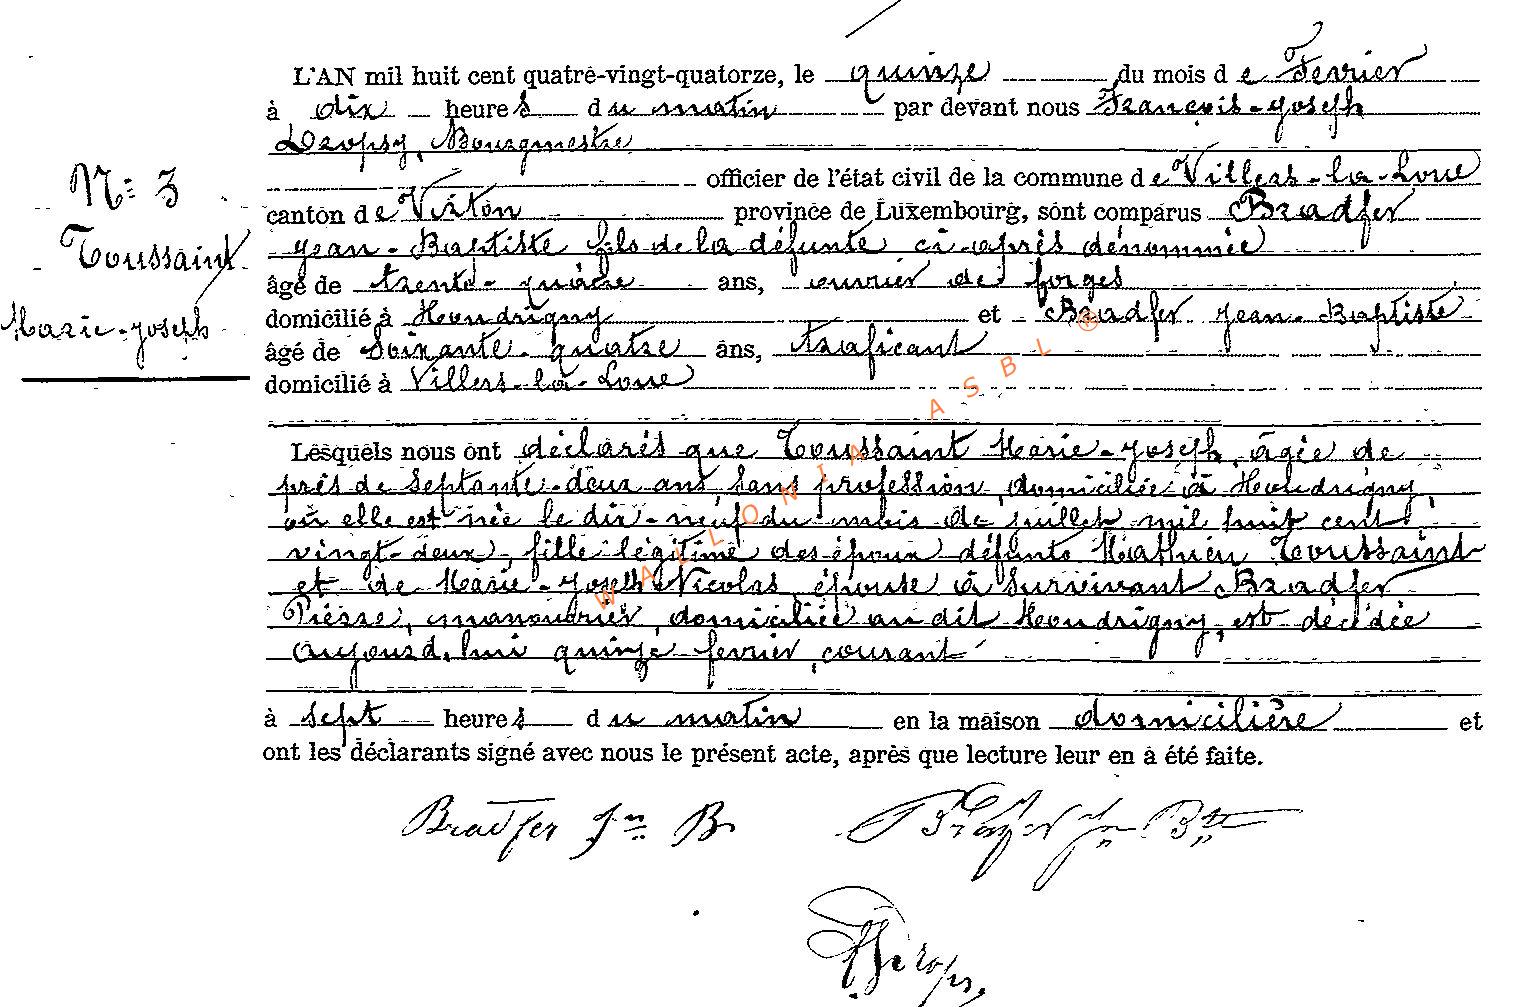 L'AN mil huit cent quatre-vingt-quatorze, le quinze du mois de Fevrier
à dix heures du matin par devant nous François-Joseph
Dropsy, Bourgmestre
N° 3
officier de l'état civil de la commune de Villers-la-Loue
canton de Virton province de Luxembourg, sont comparus Bradfer
Toussaint
Jean-Baptiste fils de la défunte ci-après dénommée
âgé de trente-quatre ans, ouvrier de forges
Marie-Joseph
domicilié à Houdrigny et Bradfer Jean-Baptiste
âgé de Soixante-quatre ans, traficant
domicilié à Villers-la-Loue
Lesquels nous ont déclarés que Toussaint Marie-Joseph, âgée de
près de Septante-deux ans, sans profession, domiciliée à Houdrigny,
où elle est née le dix-neuf du mois de juillet mil huit cent
vingt-deux, fille légitime des époux défunts Mathieu Toussaint
et de Marie-Joseph Nicolas, épouse à survivant Bradfer
Pierre, manouvrier, domiciliée au dit Houdrigny, est décédée
aujourd'hui quinze fevrier courant
à sept heures du matin en la maison domicilière et
ont les déclarants signé avec nous le présent acte, après que lecture leur en a été faite.
Bradfer Jn B Bradfer Jn Btte
Dropsy
WALLONIA ASBL ®